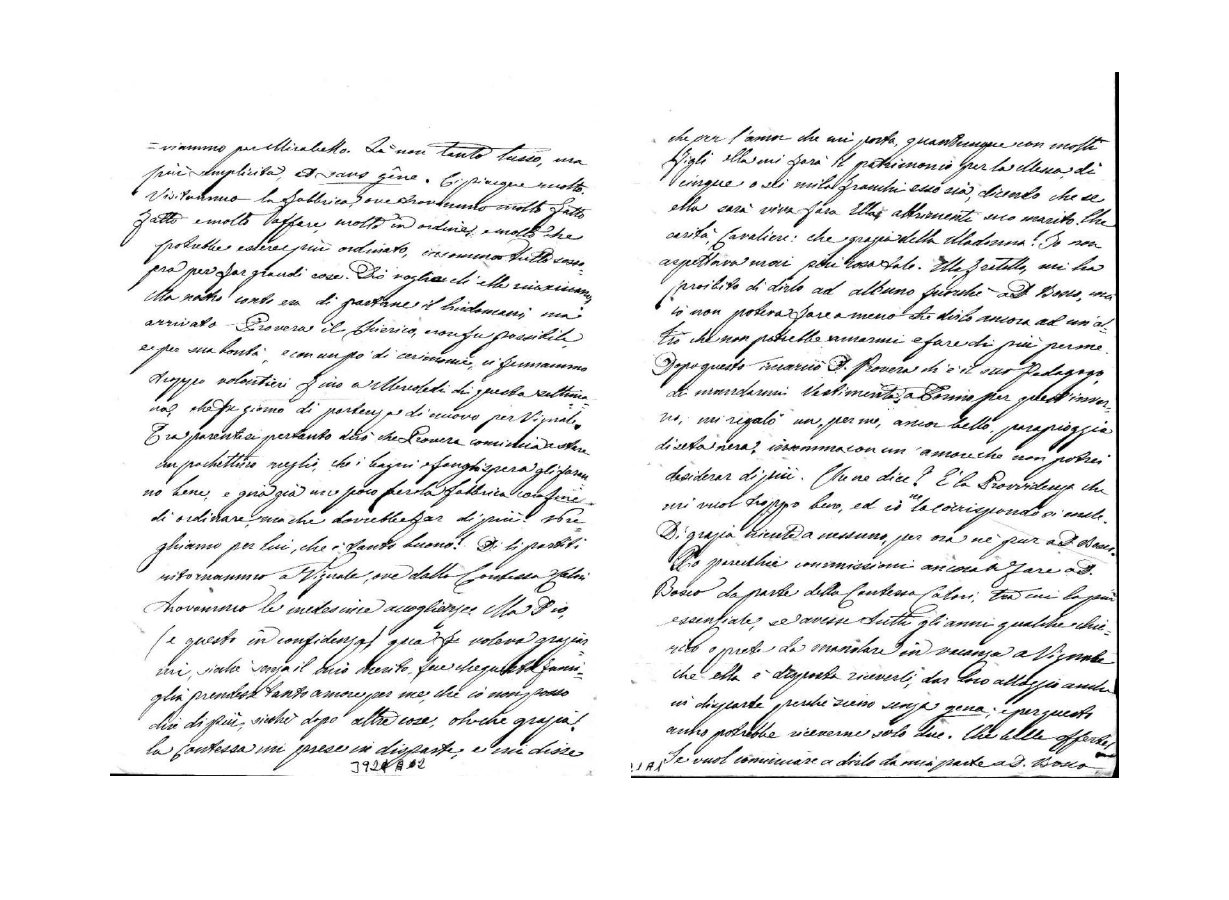 =viammo per Mirabello. Là non tanto lusso, ma
più semplicità et sans gêne. Ci piacque molto.
Visitammo la fabbrica, ove trovammo molto fatto
fatto e molto affare, molto in ordine, e molto che
potrebbe essere più ordinato, insomma tutto sosso=
pra per far grandi cose. Dio voglia ch'elle riescano
alla nostro conto era di partane il lindomani, ma
arrivato Provera il Chierico, non fu possibile
e per sua bontà, e con un po' di cerimonie, ci fermammo
troppo volontieri fino a Mercoledi di questa settima=
na, che fu giorno di partenza di nuovo per Vignale.
Tra parentesi pertanto dirò che Provera comincia a stare
un pochettino meglio, che i bagni e fanghi spera gli faran=
no bene, e già già un poco per la fabbrica
di ordinare, ma che dovrebbe far di più! Pre=
ghiamo per lui, che è tanto buono! Di lì partiti
ritornammo a Vignale, ove dalla Contessa Calori
trovammo le medesime accoglienze. Ma Dio,
(e questo in confidenza) qua voleva grazia
mi, siale senza il mio merito, fece che questa fami=
glia prendesse tanto amore per me, che io non posso
dir di più, sicchè dopo altre cose, oh che grazia!
la Contessa mi prese in disparte, e mi disse
J924A02
che per l'amor che mi porta, quantunque con molti
figli ella mi farà il patrimonio per la Messa, di
cinque o sei mila franchi esso sia, dicendo che se
ella sarà viva farà Ella, altrimenti suo marito. Che
carità, Cavaliere: che grazia della Madonna! Io non
aspettava mai più cosa tale. Ella fertello, mi ha
proibito di dirlo ad alcuno fuorchè a D. Bosco, ma
io non poteva fare a meno che dirlo ancora ad un al=
tro che non potrebbe amarmi e fare di più per me.
Dopo questo incaricò D. Provera ch'è il suo Pedagogo
di mandarmi Vestimenta a Torino per quest'inver=
no, mi regalò un, per me, ancor bello, parapioggia
di seta nera, insomma con un amore che non potrei
desiderar di più. Che ne dice? È la Provvidenza che
mi vuol troppo bene, ed io ne la corrispondo sì male.
Di grazia niente a nessuno, per ora nè pur a D. Bosco.
Ho parecchie commissioni ancora a fare a D.
Bosco da parte della Contessa Calori, tra cui la più
essenziale, se avesse tutti gli anni qualche chie=
rico o prete da mandare in vacanza a Vignale
che ella è disposta riceverli, dar loro alloggio anche
in disparte perchè sieno senza gena, e per questo
anno potrebbe riceverne solo due. Che bella offerta!
Se vuol cominciare a dirlo da mia parte a D. Bosco